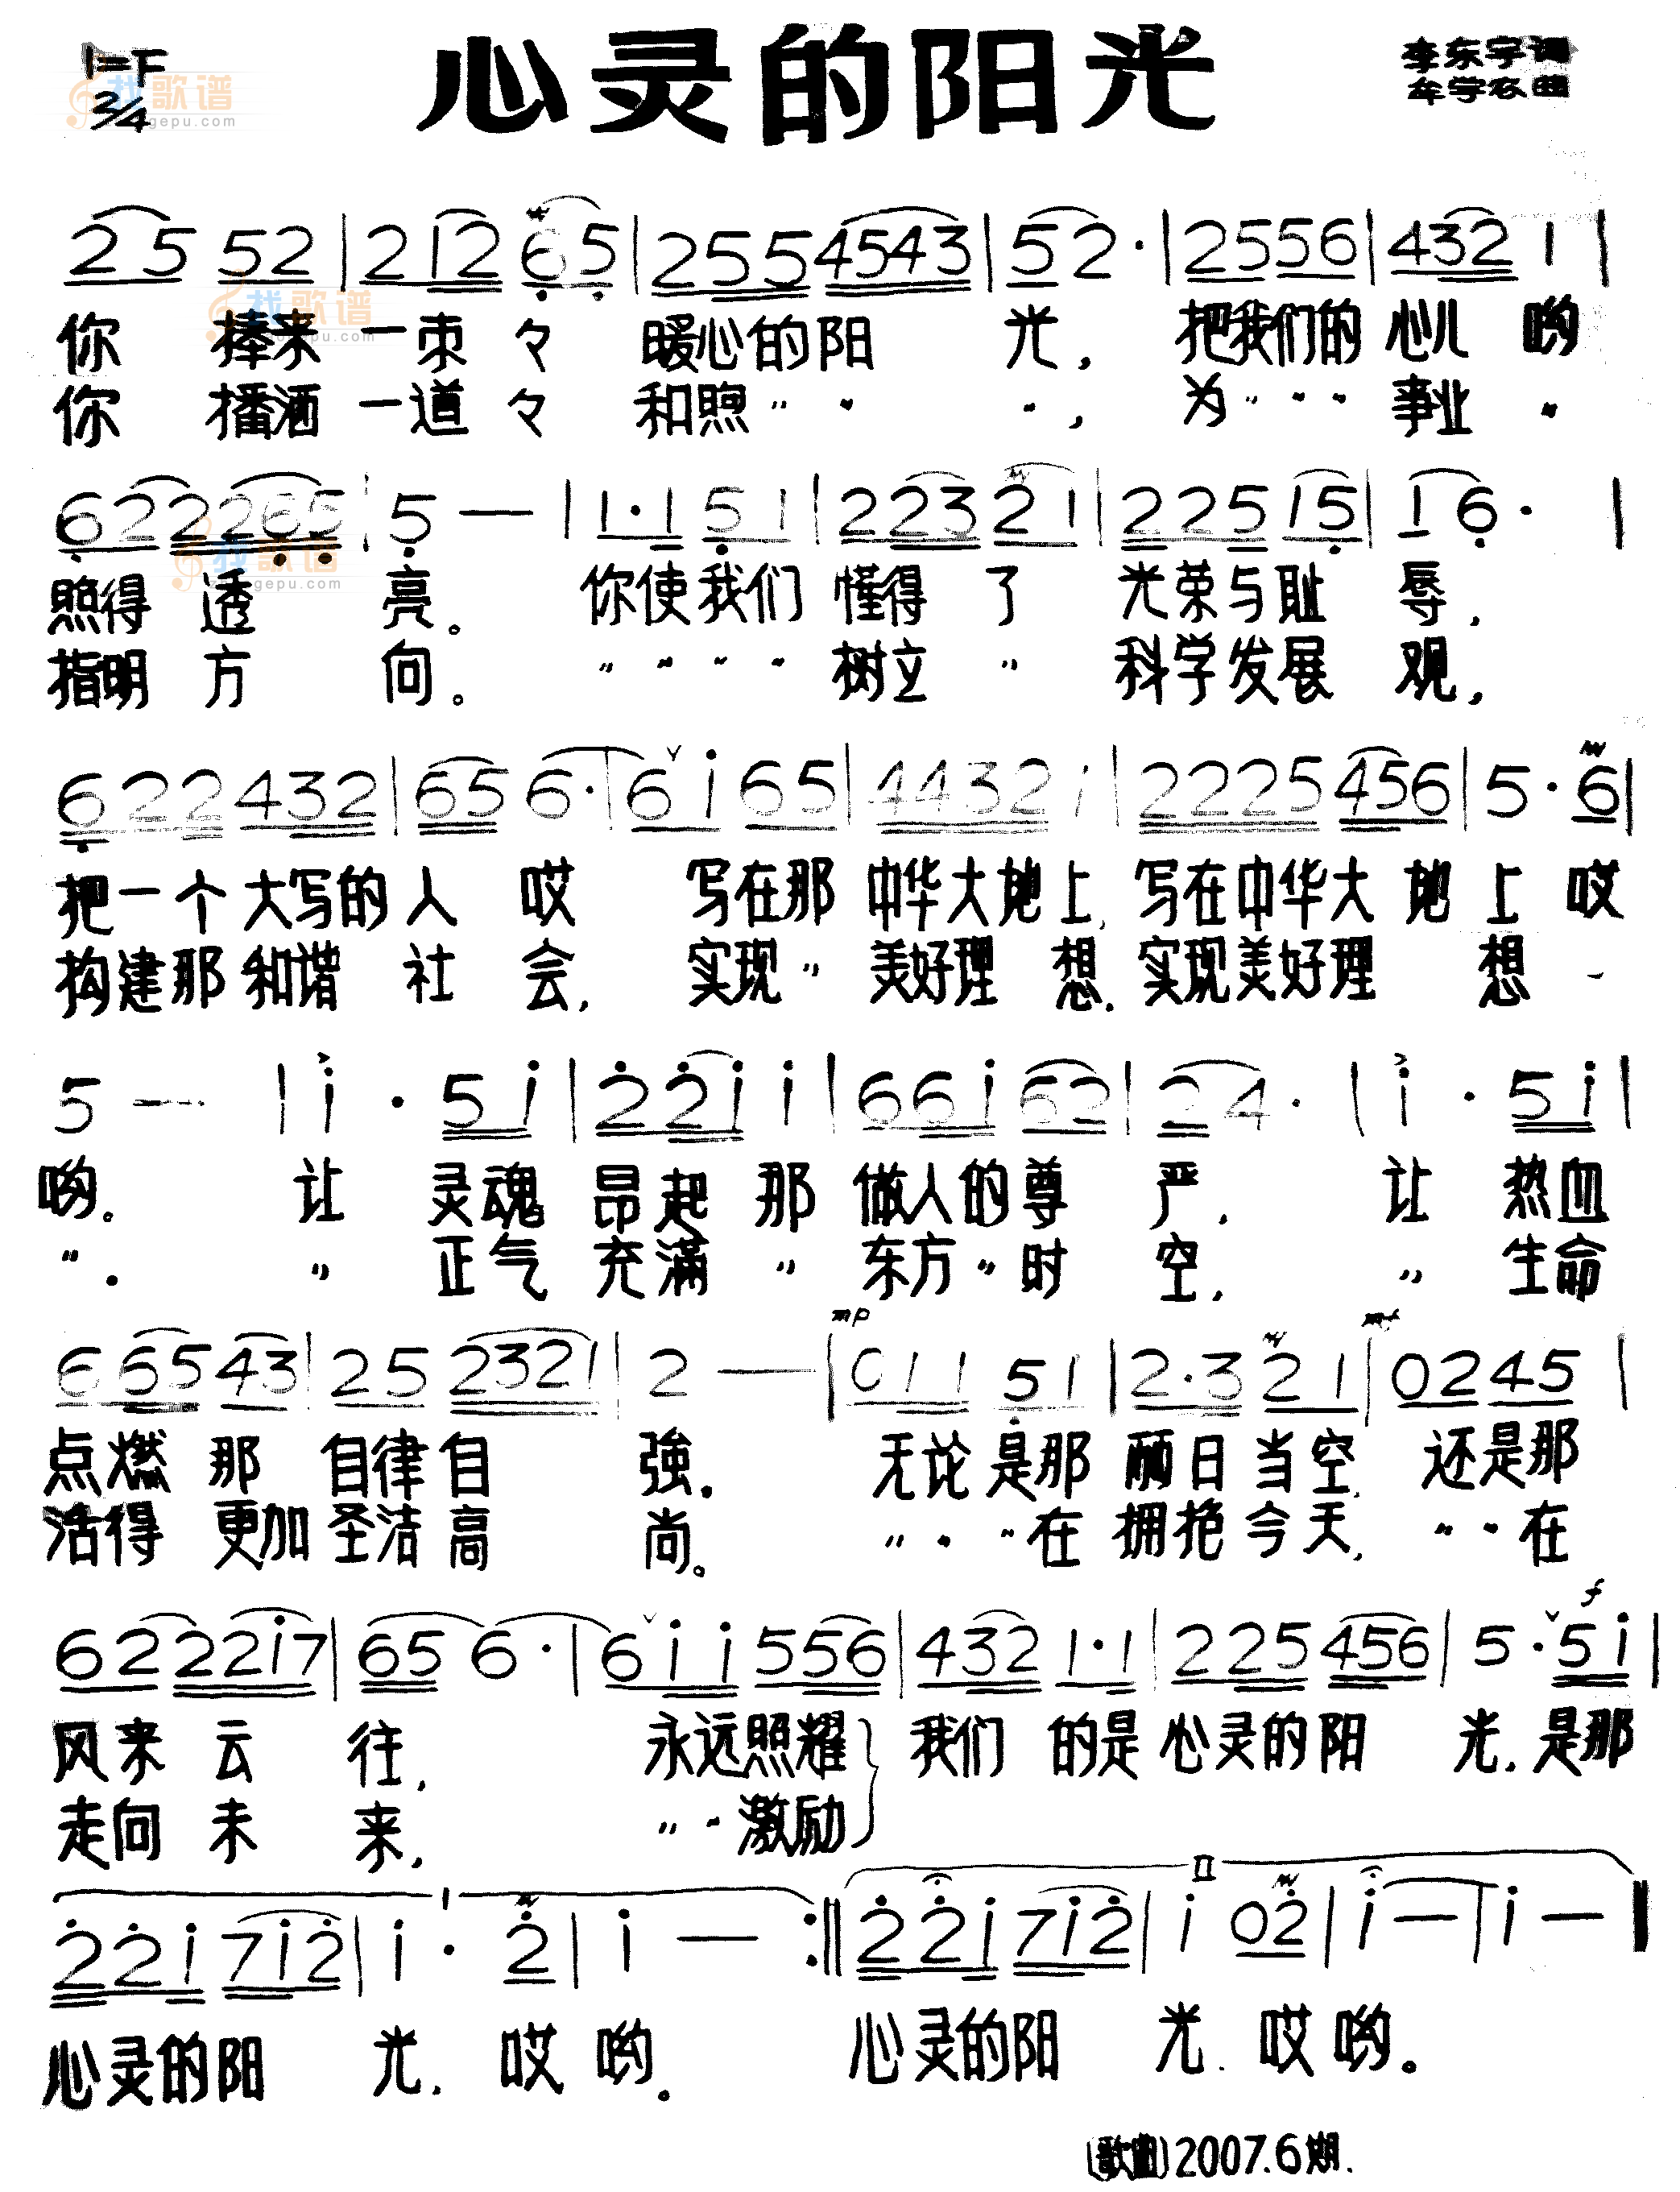 心灵的阳光
1=F
2/4
李东字词
牟学农曲
2 5 5 2 | 2 1 2 6 5 | 2 5 5 4 5 4 3 | 5 2 · | 2 5 5 6 | 4 3 2 1 |
你 捧来 一束々 暖心的阳 光, 把我们的 心儿 哟
你 播洒 一道々 和煦 〃 〃 〃, 为 〃 〃 〃 事业 〃
6 2 2 2 6 5 | 5 — | 1 · 1 5 1 | 2 2 3 2 1 | 2 2 5 1 5 | 1 6 · |
照得 透 亮。 你使我们 懂得 了 光荣与耻 辱,
指明 方 向。 〃 〃 〃 〃 树立 〃 科学发展 观,
6 2 2 4 3 2 | 6 5 6 · | 6 i 6 5 | 4 4 3 2 1 | 2 2 2 5 4 5 6 | 5 · 6 |
把一个大写的 人 哎 写在那 中华大地上, 写在中华大 地 上 哎
构建那 和谐 社 会, 实现 〃 美好理 想. 实现美好理 想 -
5 — | i · 5 i | 2 2 i i | 6 6 i 6 2 | 2 4 · | i · 5 i |
哟. 让 灵魂 昂起 那 做人的尊 严, 让 热血
〃. 〃 正气 充满 〃 东方 〃 时 空, 〃 生命
mp mf
6 6 5 4 3 | 2 5 2 3 2 1 | 2 — | 0 1 1 5 1 | 2 · 3 2 1 | 0 2 4 5 |
点燃 那 自律自 強. 无论是那 丽日当空, 还是那
活得 更加圣洁高 尚。 〃 〃 〃 在 拥抱今天, 〃 〃 在
f
6 2 2 2 i 7 | 6 5 6 · | 6 i i 5 5 6 | 4 3 2 1 · 1 | 2 2 5 4 5 6 | 5 · 5 i |
风来 云 往, 永远照耀 我们 的是 心灵的阳 光, 是那
走向 未 来, 〃 〃 激励
I II
2 2 i 7 i 2 | i · 2 | i — :‖ 2 2 i 7 i 2 | i 0 2 | i — | i — ‖
心灵的阳 光. 哎 哟. 心灵的阳 光. 哎 哟.
(歌曲)2007.6期.
找歌谱
gepu.com
找歌谱
gepu.com
找歌谱
gepu.com